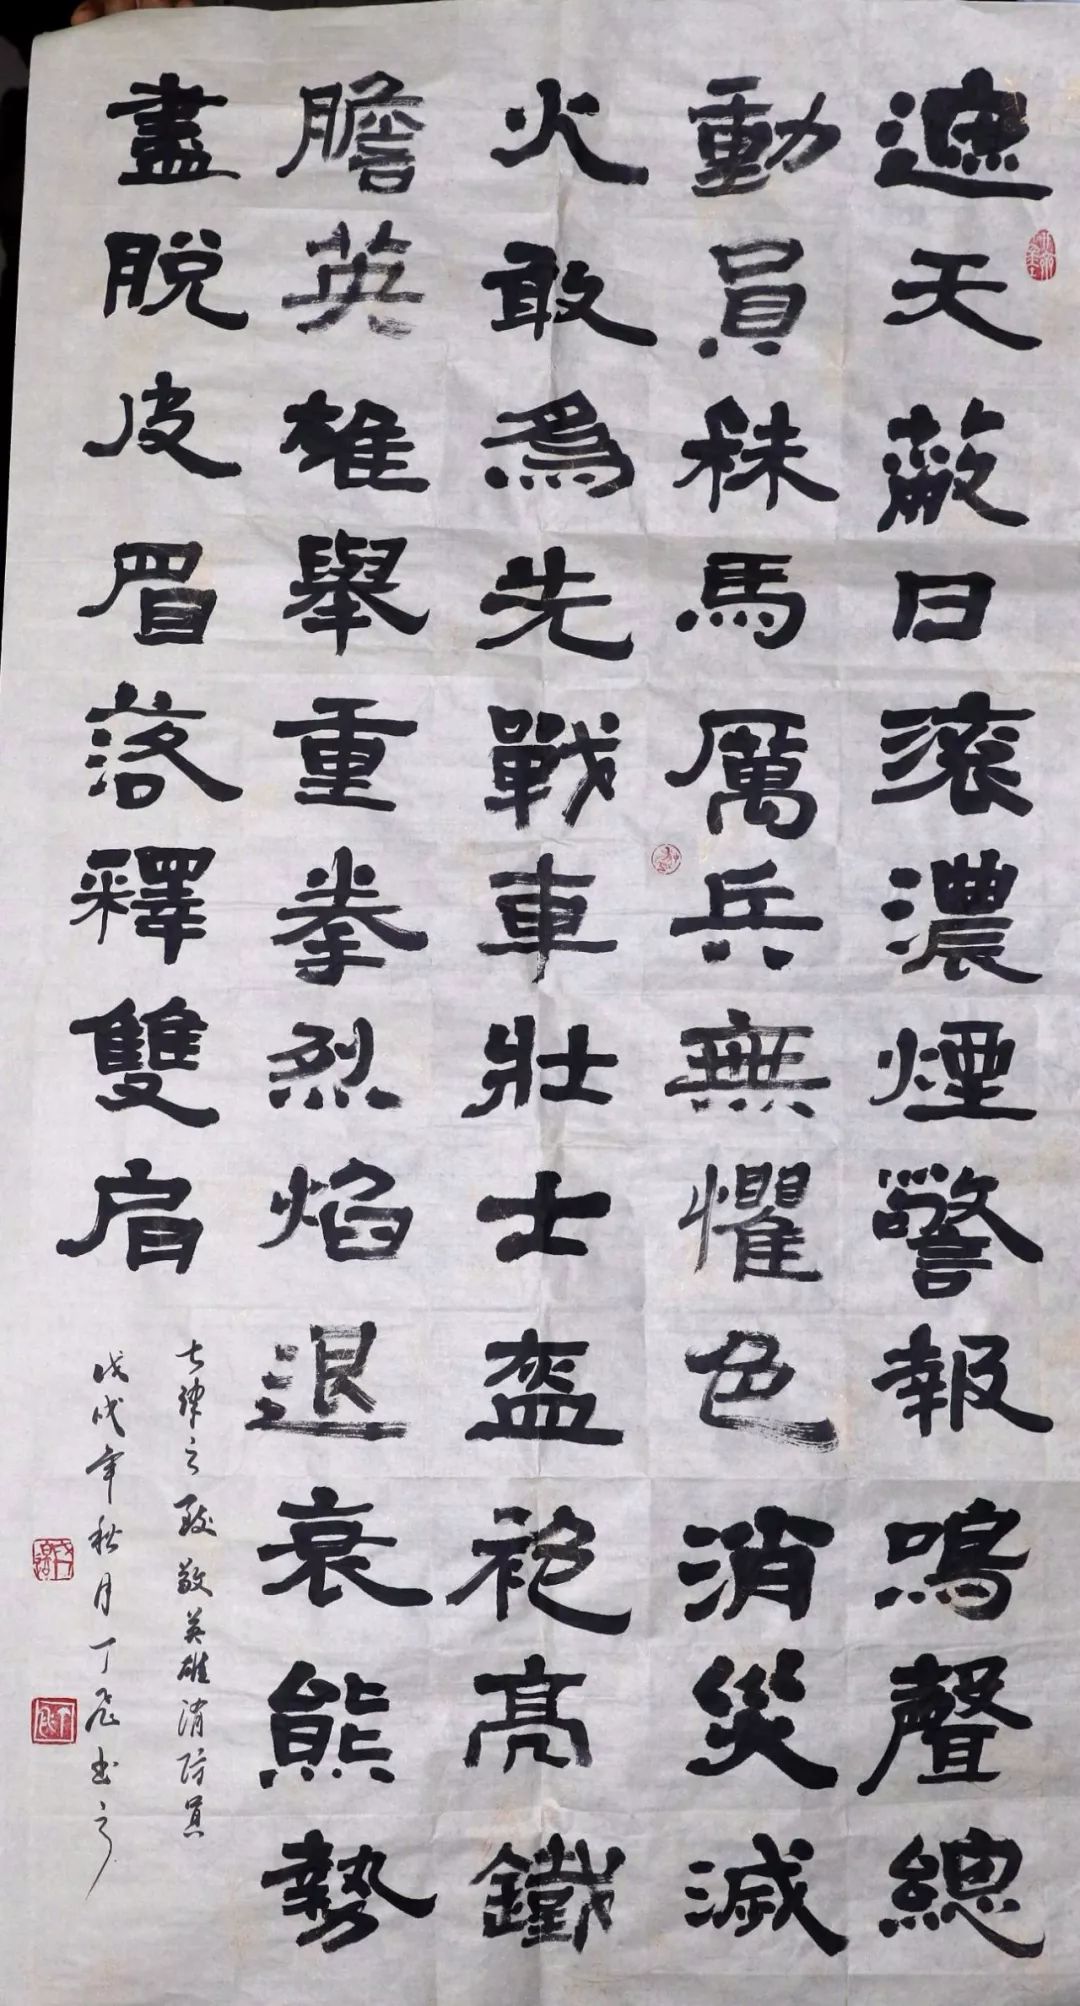 遮天蔽日滚濃煙警報鳴聲總
動員秣馬厲兵無懼色消災滅
火敢爲先戰車壯士盔袍亮鐵
膽英雄舉重拳烈焰退衰熊勢
盡脱皮眉落釋雙肩
七律之致敬英雄消防員
戊戌年秋月丁飞书之